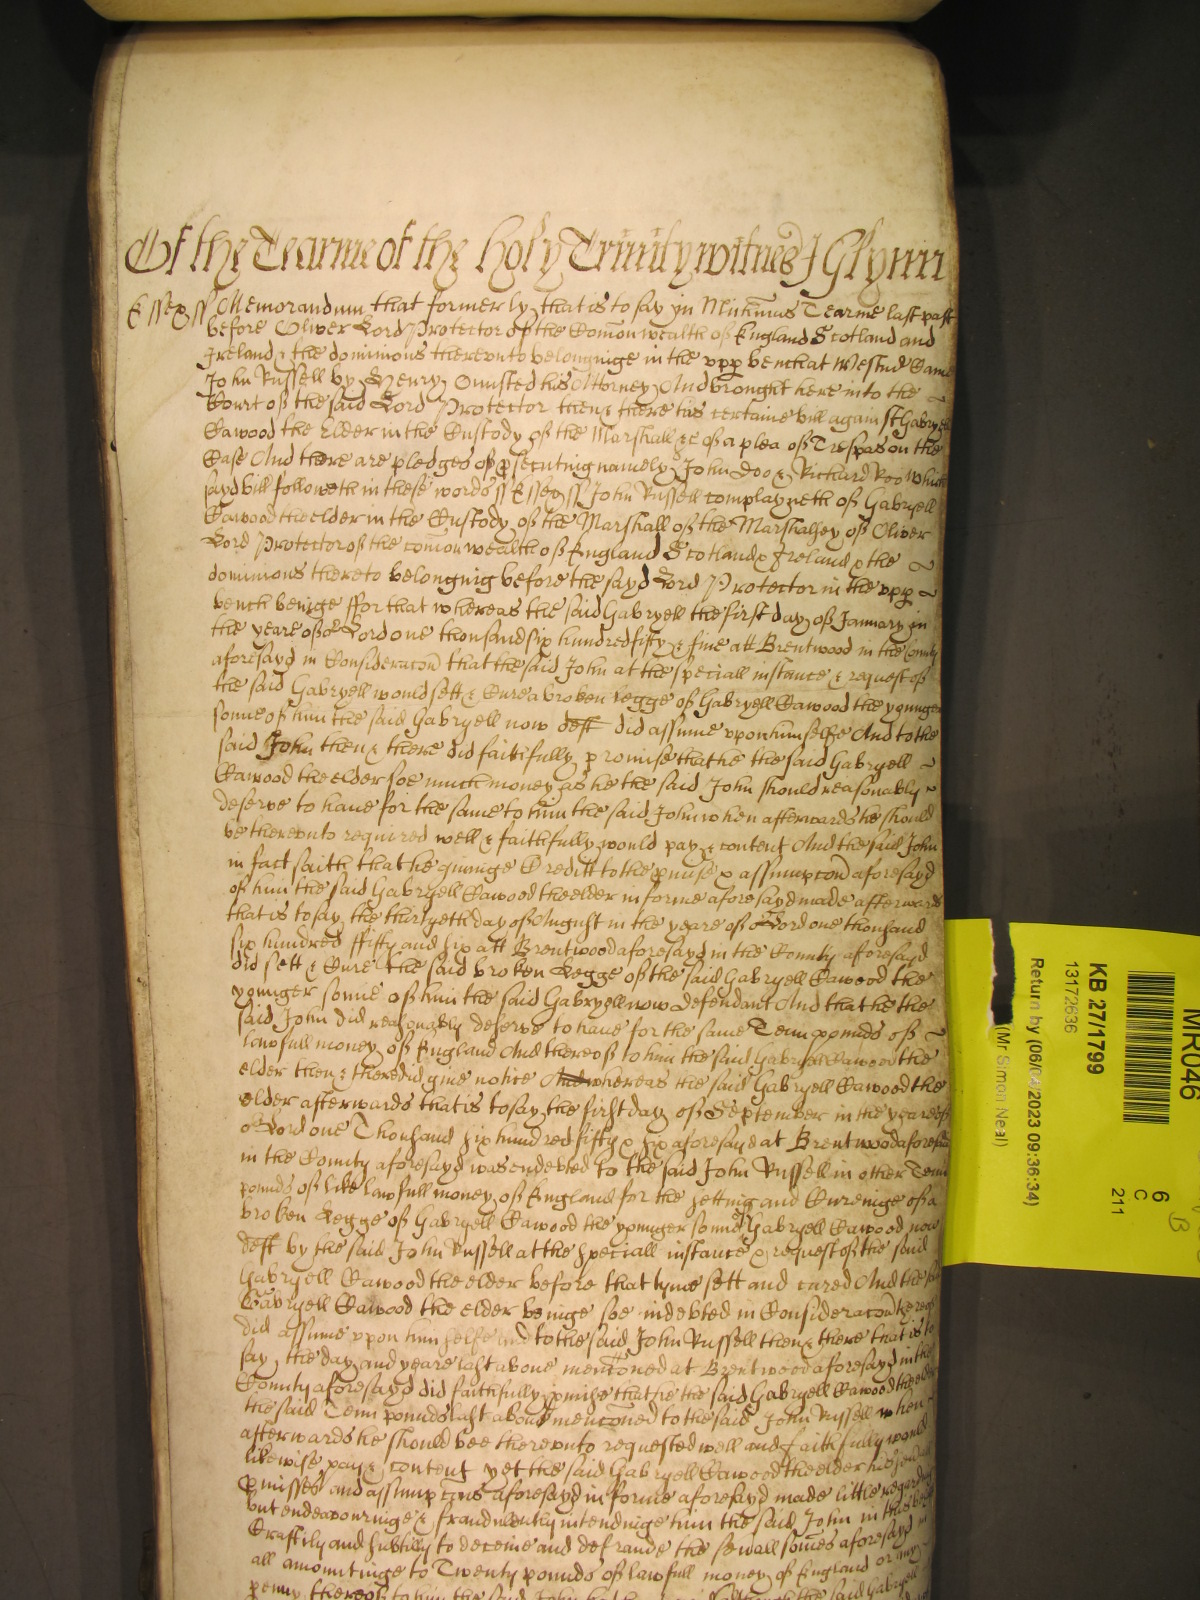 Of the Tearme of the holy Trinity witnes J Glynn
Essex ss Memorandum that formerly that is to say in Michmas Tearme last past
before Oliver Lord Protector of the Comon wealth of England Scotland and
Ireland & the dominions therevnto belonginge in the vpp bench at Westmr Came
John Russell by Henry Omsted his Attorney And brought here into the
Court of the said Lord Protector then & there his certaine bill against Gabryell
Cawood the Elder in the Custody of the Marshall &c of a plea of Trespas on the
Case And there are pledges of psecuting namely John Doo & Richard Roo which
sayd bill followeth in these words ss Essex ss John Russell complayneth of Gabryell
Cawood the elder in the Custody of the Marshall of the Marshalsey of Oliver
Lord Protector of the comon wealth of England Scotland & Ireland & the
dominions thereto belonging before the sayd Lord Protector in the vpp
bench beinge ffor that whereas the said Gabryell the first day of January in
the yeare of or Lord one thousand six hundred fifty & five att Brentwood in the County
aforesayd in Consideracon that the said John at the speciall instance & request of
the said Gabryell would sett & Cure a broken legge of Gabryell Cawood the younger
sonne of him the said Gabryell now deft did assume vpon himselfe And to the
said John then & there did faithfully promise that he the said Gabryell
Cawood the elder soe much money as he the said John should reasonably
deserve to have for the same to him the said John when afterwards he should
be therevnto required well & faithfully would pay & content And the said John
in fact saith that he giuinge Creditt to the pmise & assumpcon aforesayd
of him the said Gabryell Cawood the elder in forme aforesayd made afterwards
that is to say the thirtyeth day of August in the yeare of or Lord one thousand
six hundred ffifty and six att Brentwood aforesayd in the County aforesayd
did sett & Cure the said broken Legge of the said Gabryell Cawood the
younger sonne of him the said Gabryell now defendant And that he the
said John did reasonably deserve to haue for the same Tenn pounds of
lawfull money of England And thereof to him the said Gabryell Cawood the
elder then & there did giue notice And whereas the said Gabryell Cawood the
elder afterwards that is to say the first day of September in the yeare of
or Lord one Thousand six hundred fifty & six aforesayd at Brentwood aforesaid
in the County aforesayd was endebted to the said John Russell in other Tenn
pounds of like lawfull money of England for the setting and Cureinge of a
broken Legge of Gabryell Cawood the younger sonne of Gabryell Cawood now
deft by the said John Russell at the speciall instance & request of the said
Gabryell Cawood the elder before that tyme sett and cured And the said
Gabryell Cawood the elder beinge soe indebted in Consideracon thereof
did assume vpon him selfe and to the said John Russell then & there that is to
say the day and yeare last aboue mentoned at Brentwood aforesayd in the
County aforesayd did faithfully pmise that he the said Gabryell Cawood the elder
the said Tenn pounds last aboue mentoned to the said John Russell when
afterwards he should bee therevnto requested well and faithfully would
likewise pay & content yet the said Gabryell Cawood the elder his said
pmisses and assumpcons aforesayd in forme aforesayd made little regarding
but endeavouringe & fraudulently intendinge him the said John in this behalf
Craftily and subtilly to deceive and defraude the sewall somes aforesayd in
all amountinge to Twenty pounds of lawfull money of England or any
penny thereof to him the said John
MR046
KB 27/1799
13172636
Return by (06/04/2023 09:36:34)
(Mr Simon Neal)
6
C
211
B